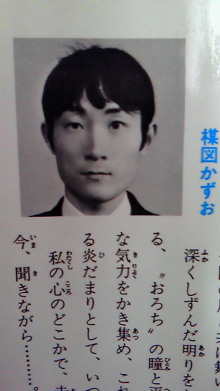 楳図かずお
深くしずんだ明りを
る、〝おろち〟の瞳と
な気力をかき集め、これ
る炎だまりとして、いつ
私の心のどこかで、
今、聞きながら……。